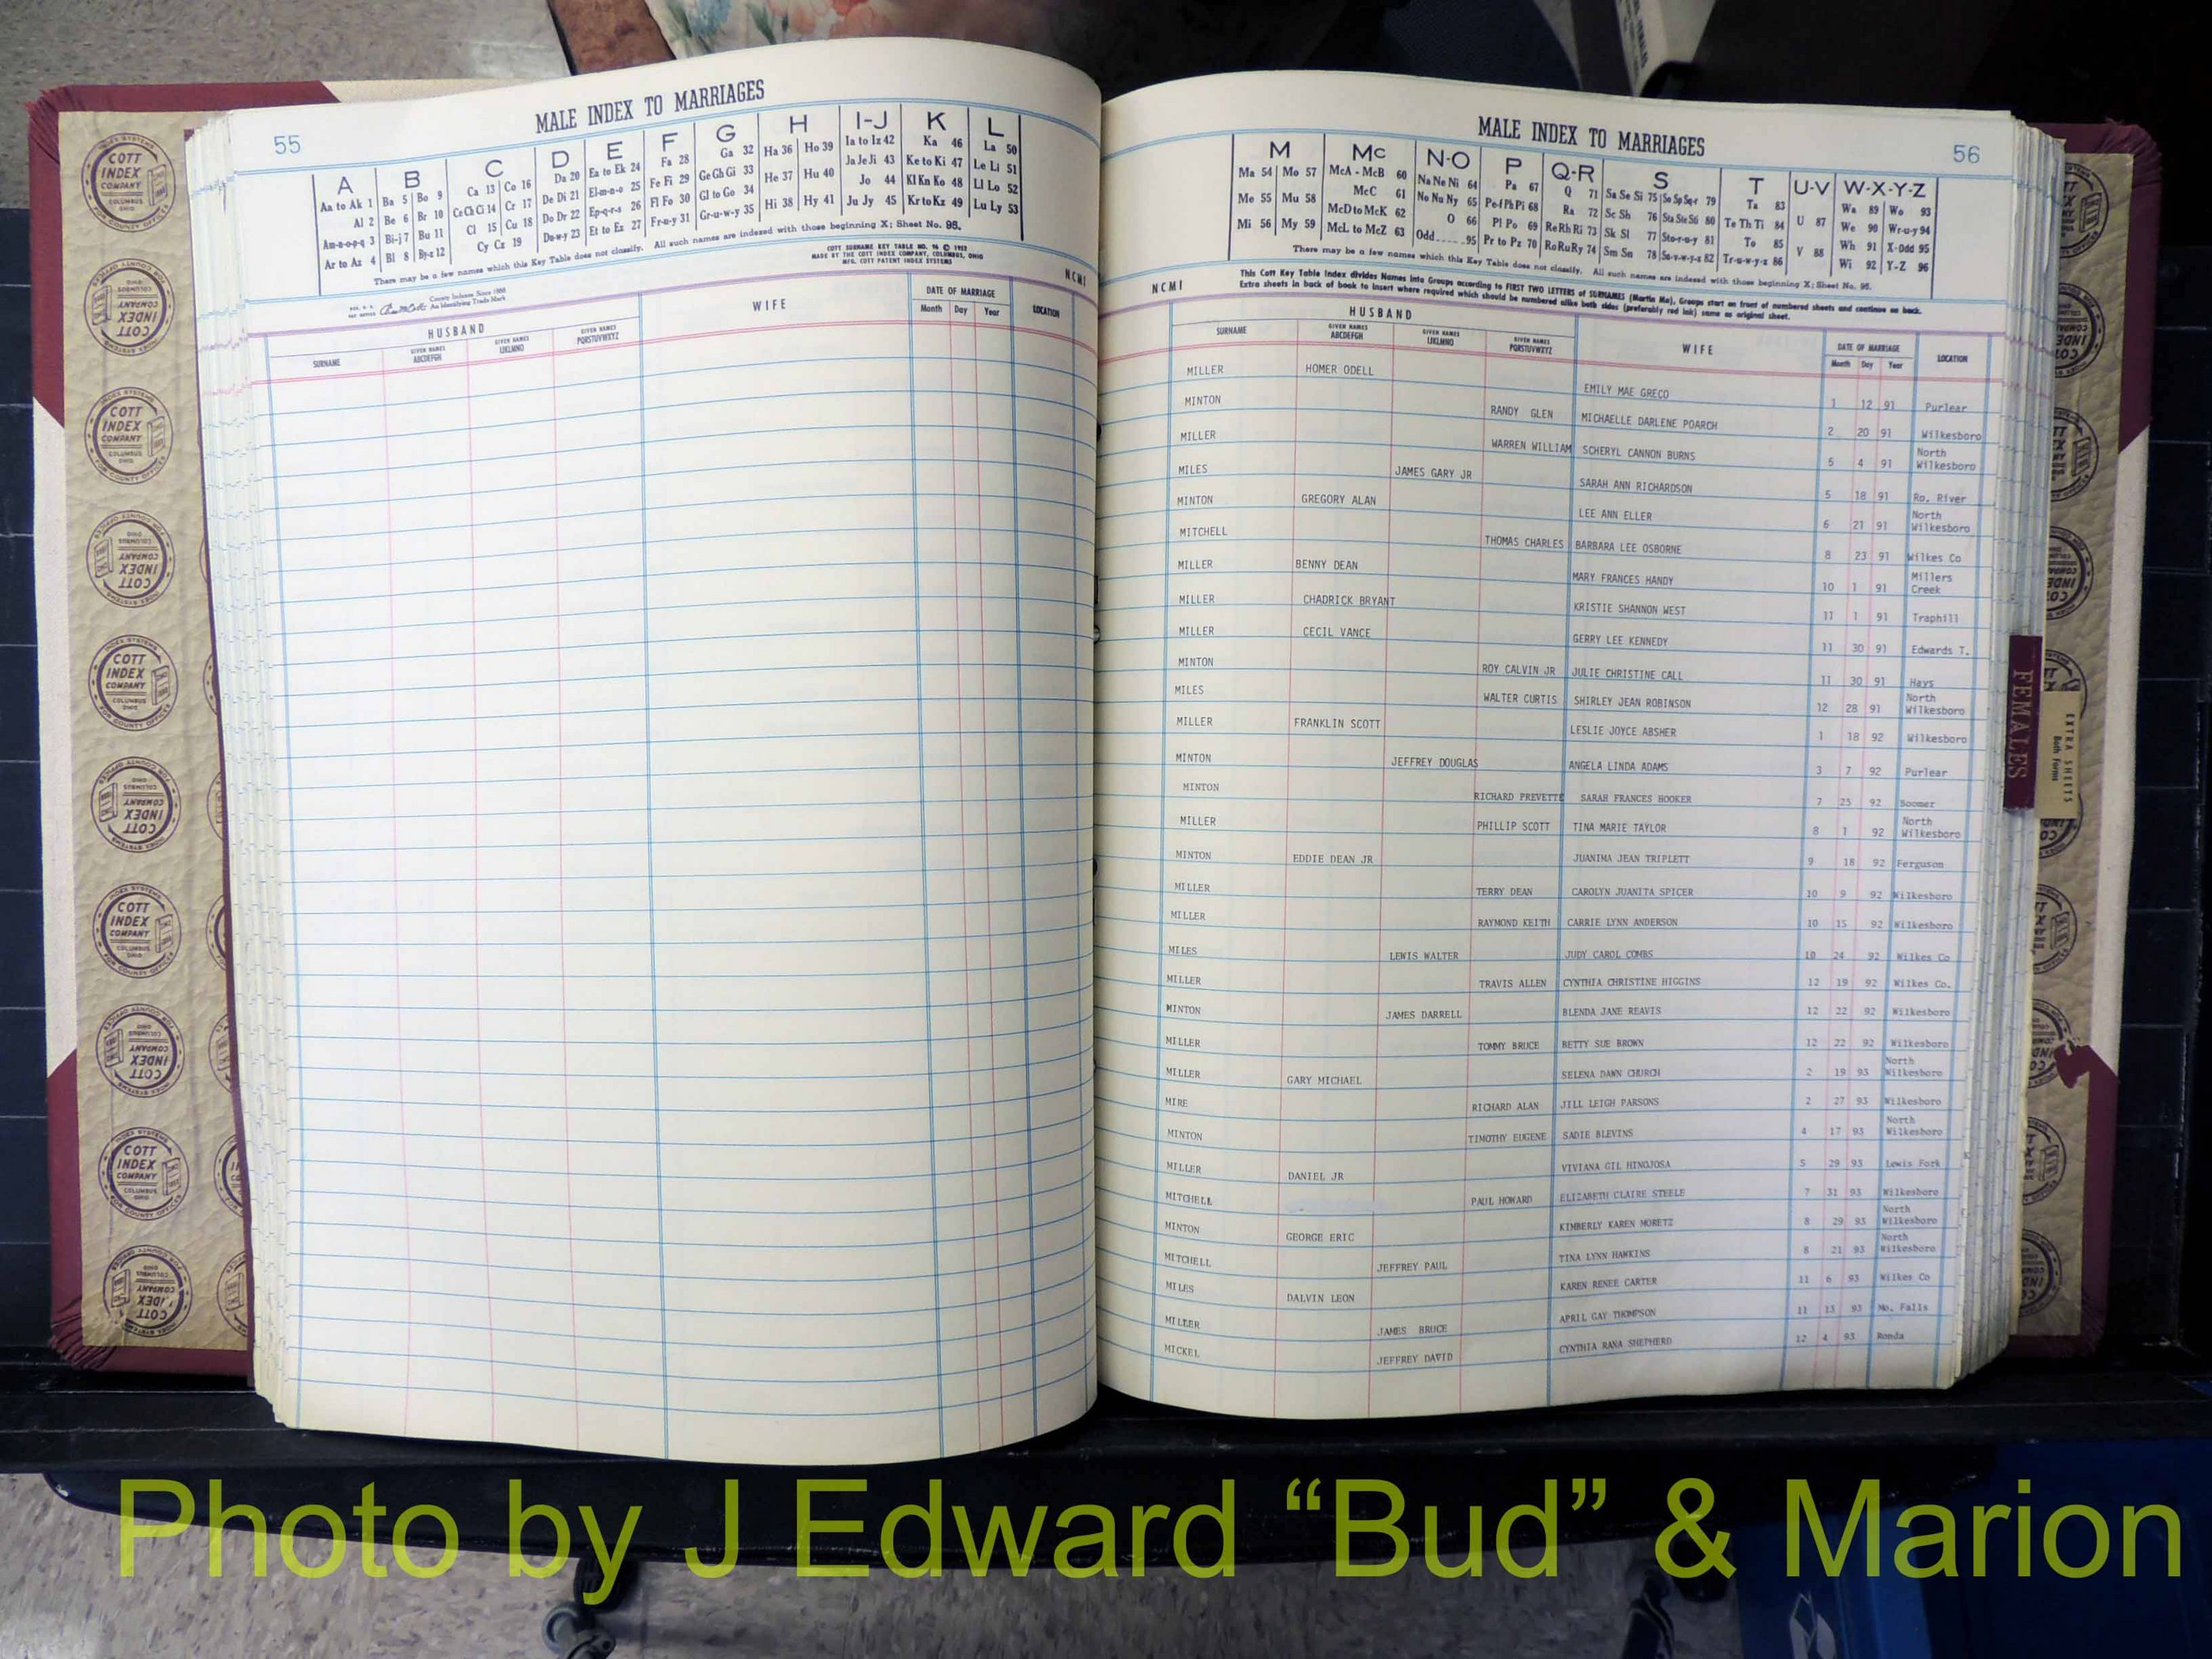 55
MALE INDEX TO MARRIAGES
A B C D E F G H I-J K L
Aa to Ak 1 Ba 5 Bo 9 Ca 13 Co 16 Da 20 Ea to Ek 24 Fa 28 Ga 32 Ha 36 Ho 39 Ia to Iz 42 Ka 46 La 50
Al 2 Be 6 Br 10 Ce Ch Ci 14 Cr 17 De Di 21 El-m-n-o 25 Fe Fi 29 Ge Gh Gi 33 He 37 Hu 40 Ja Je Ji 43 Ke to Ki 47 Le Li 51
Am-n-o-p-q 3 Bi-j 7 Bu 11 Cl 15 Cu 18 Do Dr 22 Ep-q-r-s 26 Fl Fo 30 Gl to Go 34 Hi 38 Hy 41 Jo 44 Kl Kn Ko 48 Ll Lo 52
Ar to Az 4 Bl 8 By-z 12 Cy Cz 19 Du-w-y 23 Et to Ez 27 Fr-u-y 31 Gr-u-w-y 35 Ju Jy 45 Kr to Kz 49 Lu Ly 53
There may be a few names which this Key Table does not classify. All such names are indexed with those beginning X; Sheet No. 95.
COTT SURNAME KEY TABLE NO. 96 © 1952
MADE BY THE COTT INDEX COMPANY, COLUMBUS, OHIO
MFG. COTT PATENT INDEX SYSTEMS
County Indexes Since 1888
An Identifying Trade Mark
NCMI
HUSBAND WIFE DATE OF MARRIAGE LOCATION
SURNAME GIVEN NAMES ABCDEFGH GIVEN NAMES IJKLMNO GIVEN NAMES PQRSTUVWXYZ Month Day Year
56
MALE INDEX TO MARRIAGES
M Mc N-O P Q-R S T U-V W-X-Y-Z
Ma 54 Mo 57 McA - McB 60 Na Ne Ni 64 Pa 67 Q 71 Sa Se Si 75 So Sp Sq-r 79 Ta 83 U 87 Wa 89 Wo 93
Me 55 Mu 58 McC 61 No Nu Ny 65 Pe-f Ph Pi 68 Ra 72 Sc Sh 76 Sta Ste Sti 80 Te Th Ti 84 V 88 We 90 Wr-u-y 94
Mi 56 My 59 McD to McK 62 O 66 Pl Po 69 Re Rh Ri 73 Sk Sl 77 Sto-r-u-y 81 To 85 Wh 91 X-Odd 95
McL to McZ 63 Odd 95 Pr to Pz 70 Ro Ru Ry 74 Sm Sn 78 Su-v-w-y-z 82 Tr-u-w-y-z 86 Wi 92 Y-Z 96
There may be a few names which this Key Table does not classify. All such names are indexed with those beginning X; Sheet No. 95.
This Cott Key Table Index divides Names into Groups according to FIRST TWO LETTERS of SURNAMES (Martin Ma), Groups start on front of numbered sheets and continue on back.
Extra sheets in back of book to insert where required which should be numbered alike both sides (preferably red ink) same as original sheet.
NCMI
HUSBAND WIFE DATE OF MARRIAGE LOCATION
SURNAME GIVEN NAMES ABCDEFGH GIVEN NAMES IJKLMNO GIVEN NAMES PQRSTUVWXYZ Month Day Year
MILLER HOMER ODELL EMILY MAE GRECO 1 12 91 Purlear
MINTON RANDY GLEN MICHAELLE DARLENE POARCH 2 20 91 Wilkesboro
MILLER WARREN WILLIAM SCHERYL CANNON BURNS 5 4 91 North Wilkesboro
MILES JAMES GARY JR SARAH ANN RICHARDSON 5 18 91 Ro. River
MINTON GREGORY ALAN LEE ANN ELLER 6 21 91 North Wilkesboro
MITCHELL THOMAS CHARLES BARBARA LEE OSBORNE 8 23 91 Wilkes Co
MILLER BENNY DEAN MARY FRANCES HANDY 10 1 91 Millers Creek
MILLER CHADRICK BRYANT KRISTIE SHANNON WEST 11 1 91 Traphill
MILLER CECIL VANCE GERRY LEE KENNEDY 11 30 91 Edwards T.
MINTON ROY CALVIN JR JULIE CHRISTINE CALL 11 30 91 Hays
MILES WALTER CURTIS SHIRLEY JEAN ROBINSON 12 28 91 North Wilkesboro
MILLER FRANKLIN SCOTT LESLIE JOYCE ABSHER 1 18 92 Wilkesboro
MINTON JEFFREY DOUGLAS ANGELA LINDA ADAMS 3 7 92 Purlear
MINTON RICHARD PREVETTE SARAH FRANCES HOOKER 7 25 92 Boomer
MILLER PHILLIP SCOTT TINA MARIE TAYLOR 8 1 92 North Wilkesboro
MINTON EDDIE DEAN JR JUANIMA JEAN TRIPLETT 9 18 92 Ferguson
MILLER TERRY DEAN CAROLYN JUANITA SPICER 10 9 92 Wilkesboro
MILLER RAYMOND KEITH CARRIE LYNN ANDERSON 10 15 92 Wilkesboro
MILES LEWIS WALTER JUDY CAROL COMBS 10 24 92 Wilkes Co
MILLER TRAVIS ALLEN CYNTHIA CHRISTINE HIGGINS 12 19 92 Wilkes Co.
MINTON JAMES DARRELL BLENDA JANE REAVIS 12 22 92 Wilkesboro
MILLER TOMMY BRUCE BETTY SUE BROWN 12 22 92 Wilkesboro
MILLER GARY MICHAEL SELENA DAWN CHURCH 2 19 93 North Wilkesboro
MIRE RICHARD ALAN JILL LEIGH PARSONS 2 27 93 Wilkesboro
MINTON TIMOTHY EUGENE SADIE BLEVINS 4 17 93 North Wilkesboro
MILLER DANIEL JR VIVIANA GIL HINOJOSA 5 29 93 Lewis Fork
MITCHELL PAUL HOWARD ELIZABETH CLAIRE STEELE 7 31 93 Wilkesboro
MINTON GEORGE ERIC KIMBERLY KAREN MORETZ 8 29 93 North Wilkesboro
MITCHELL JEFFREY PAUL TINA LYNN HAWKINS 8 21 93 North Wilkesboro
MILES DALVIN LEON KAREN RENEE CARTER 11 6 93 Wilkes Co
MILLER JAMES BRUCE APRIL GAY THOMPSON 11 13 93 Mo. Falls
MICKEL JEFFREY DAVID CYNTHIA RANA SHEPHERD 12 4 93 Ronda
FEMALES
EXTRA SHEETS
Both Forms
COTT INDEX COMPANY
COLUMBUS OHIO
INDEX SYSTEMS
FOR COUNTY OFFICES
Photo by J Edward “Bud” & Marion